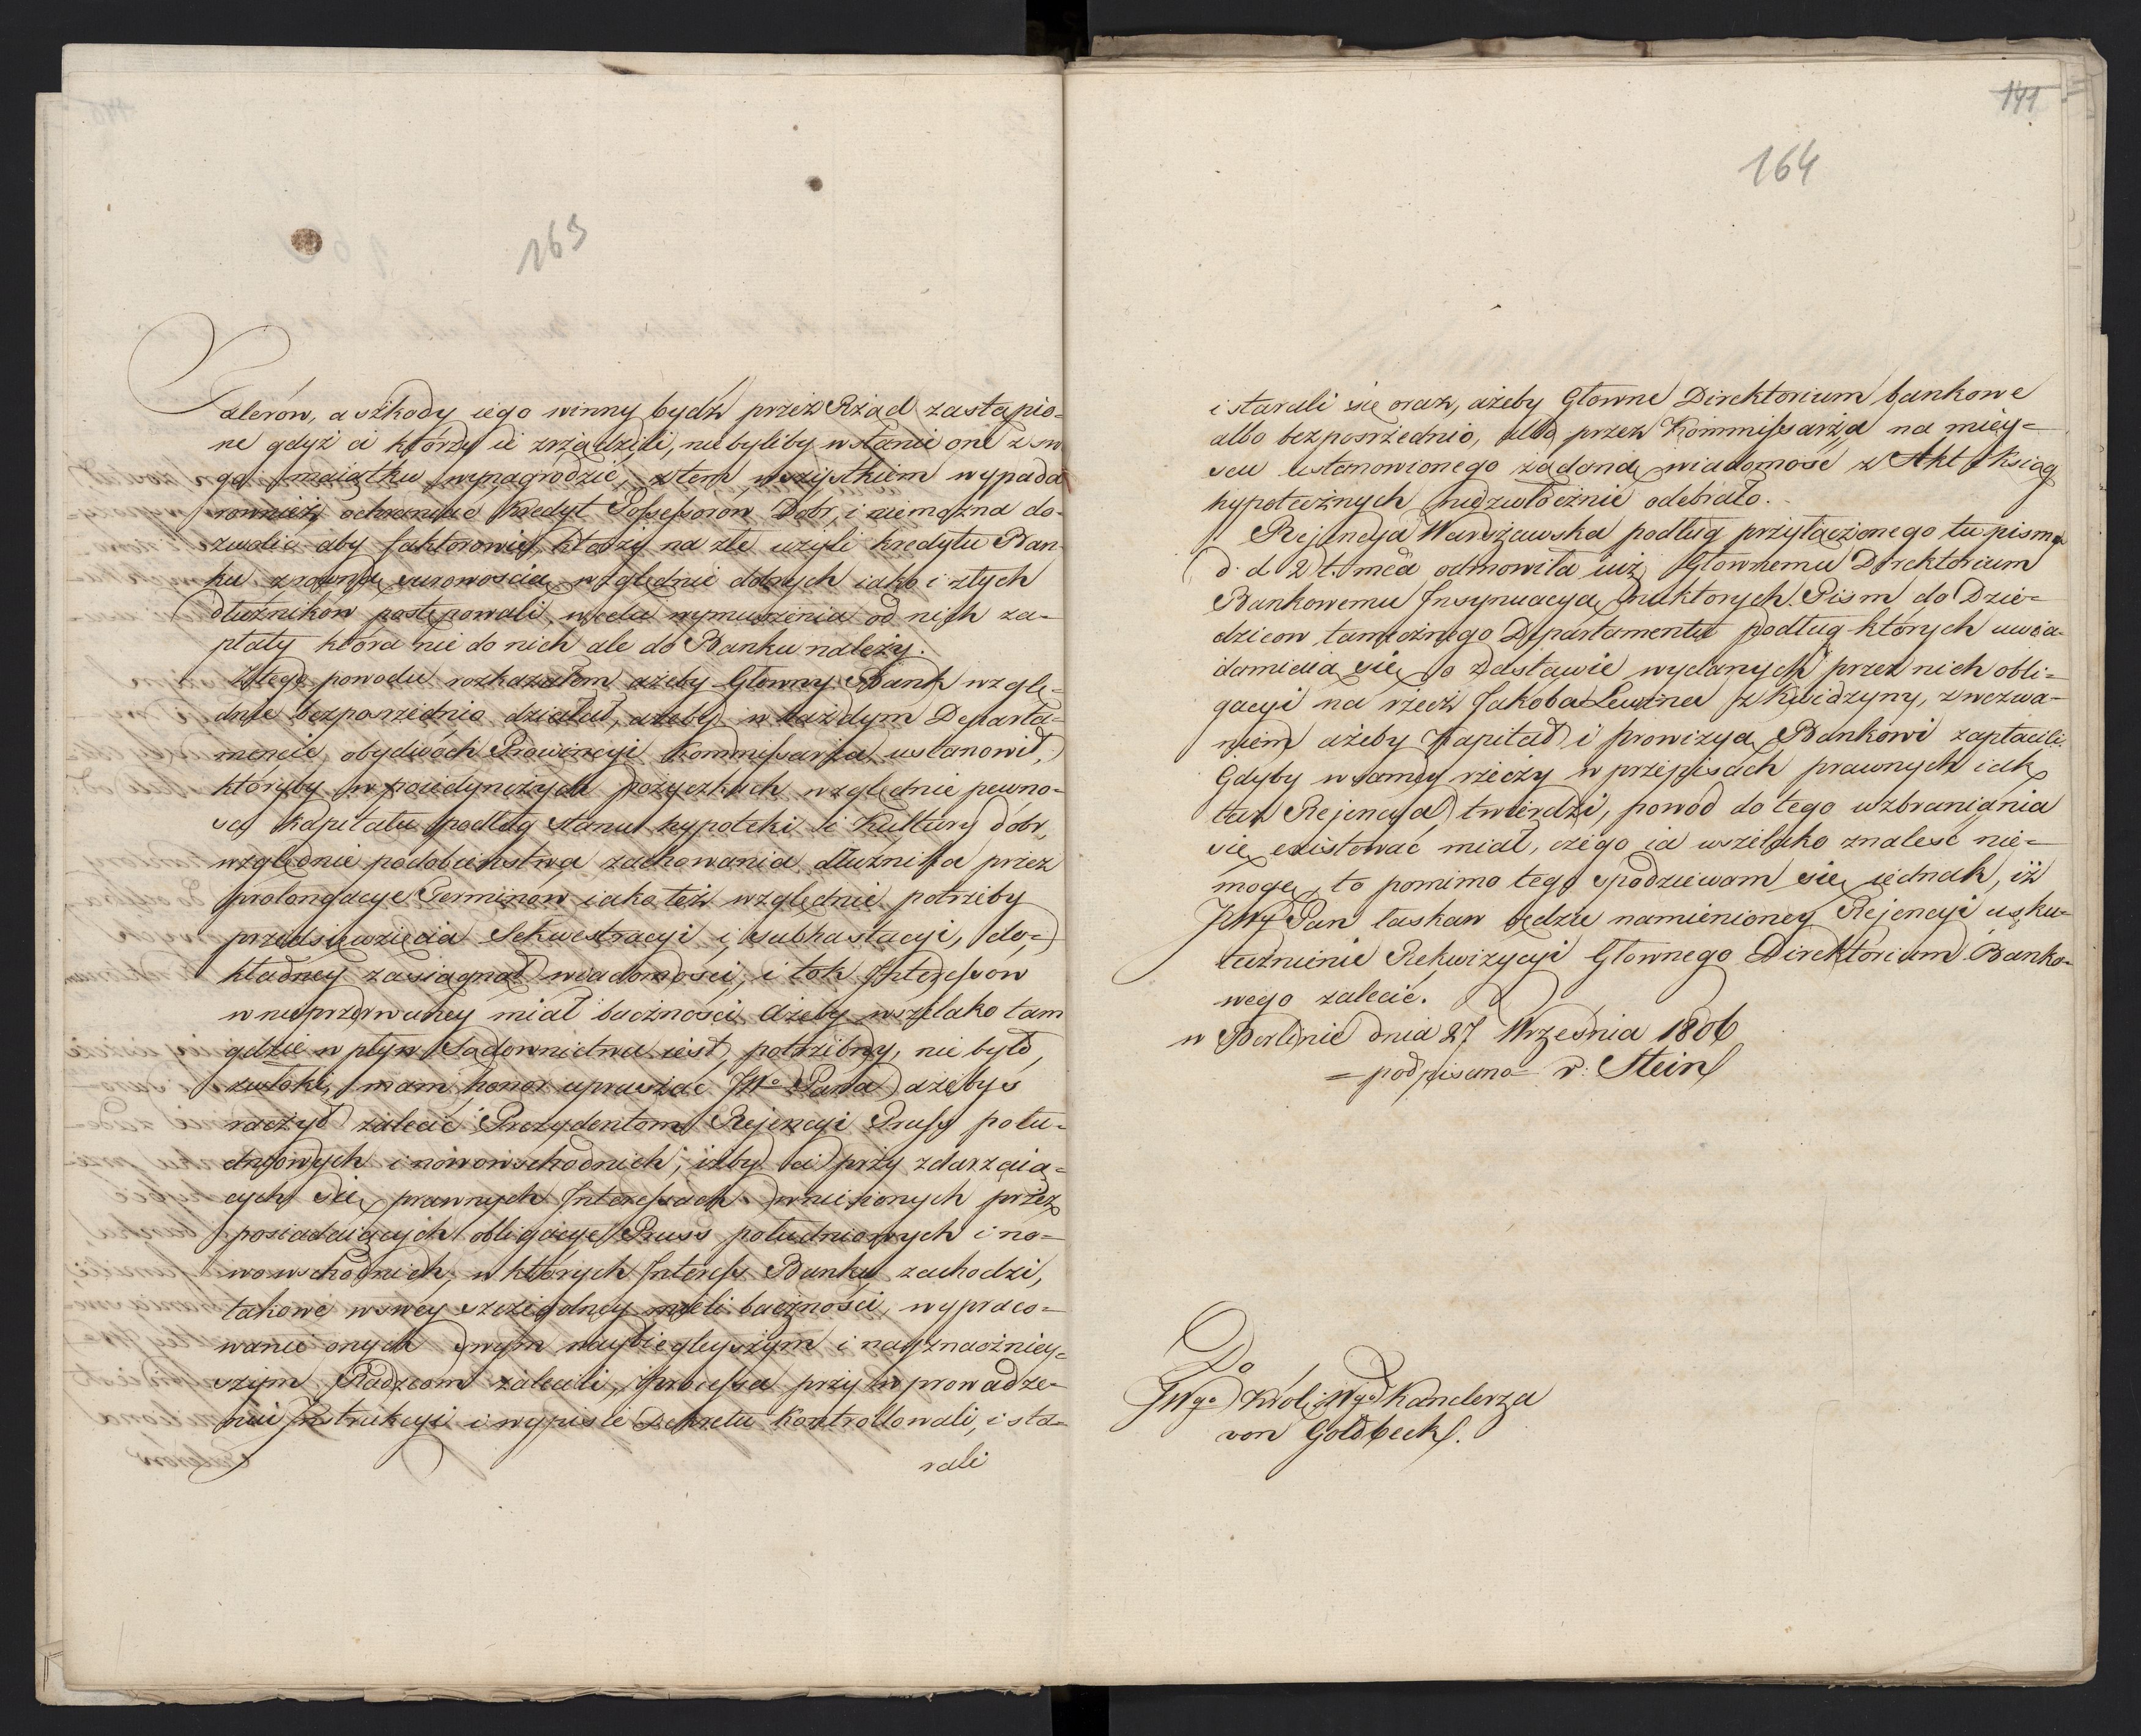 163
Talerów, a szkody iego winny bydź przez Rząd zastąpio-
ne gdyż ci którzy ie zrządzili, nie byliby w stanie one z sw
go maiątku wynagrodzić, z tem wszystkiem wypada
rownież ochraniać Kredyt Possessorow Dobr, i niemożna do-
zwolić aby faktorowie, którzy na złe użyli kredytu Ban-
ku z rowną surowością względnie dobrych iako i złych
dłużnikow postępowali, w celu wymuszenia od nich za-
płaty która nie do nich ale do Banku należy.
Z tego powodu rozkazałem ażeby Głowny Bank wzglę-
dnie bezposrzednio działał, ażeby w każdym Departa-
mencie obydwoch Prowincyi Kommissarza ustanowił,
któryby w poiedynczych pożyczkach względnie pewno-
sci Kapitału podług stanu hypoteki i Kultury dóbr,
względnie podobieństwa zachowania dłużnika przez
prolongacye Terminow iako też względnie potrzeby
przedsięwzięcia Sekwestracyi i subhastacyi, do-
kładney zasiągnął wiadomości, i tok Interessow
w nieprzerwaney miał baczności, ażeby wszelako tam
gdzie wpływ Sądownictwa iest potrzebny, nie było
zwłoki, mam honor upraszać JWo Pana ażebyś
raczył zalecić Prezydentom Rejencyi Pruss połu-
dniowych i nowowschodnich, iżby ci przy zdarzaią-
cych się prawnych Interessach wniesionych przez
posiadaiących obligacye Pruss południowych i no-
wowschodnich, w których Interess Banku zachodzi,
takowe w swey szczegolney mieli baczności, wypraco-
wanie onych swym naybiegleyszym i nayznaczniey-
szym Radzcom zalecili, Processa przy wprowadze-
niu Instrukcyi i wypisie Dekretu Kontrollowali, i sta-
rali
141
164
i starali się oraz, ażeby Głowne Direktorium bankowe
albo bezposrzednio, albo przez Kommissarza na miey-
scu ustanowionego żądaną wiadomość z Akt i Ksiąg
hypotecznych niezwłocznie odebrało.
Rejencya Warszawska podług przyłączonego tu pisma
d. d. 2 t. mca odmowiła iuż Głownemu Direktorium
Bankowemu Insynuacyą niektorych Pism do Dzie-
dzicow tamecznego Departamentu podług których uwia-
damiaią się o Zastawie wydanych przez nich obli-
gacyi na rzecz Jakoba Lewina z Kwidzyny, z wezwa-
niem ażeby Kapitał i prowizyą Bankowi zapłacili.
Gdyby w samey rzeczy w przepisach prawnych iak
taż Rejencya twierdzi, powod do tego wzbraniania
się existować miał, czego ia wszelako znaleść nie-
mogę, to pomimo tego spodziewam się iednak, iż
JWy Pan łaskaw będzie namienioney Rejencyi usku-
tecznienie Rekwizycyi Głownego Direktorium Banko-
wego zalecić.
w Berlinie dnia 27 Września 1806
= podpisano = v: Stein
Do
JWgo Krol: Wgo Kanclerza
von Goldbeck.